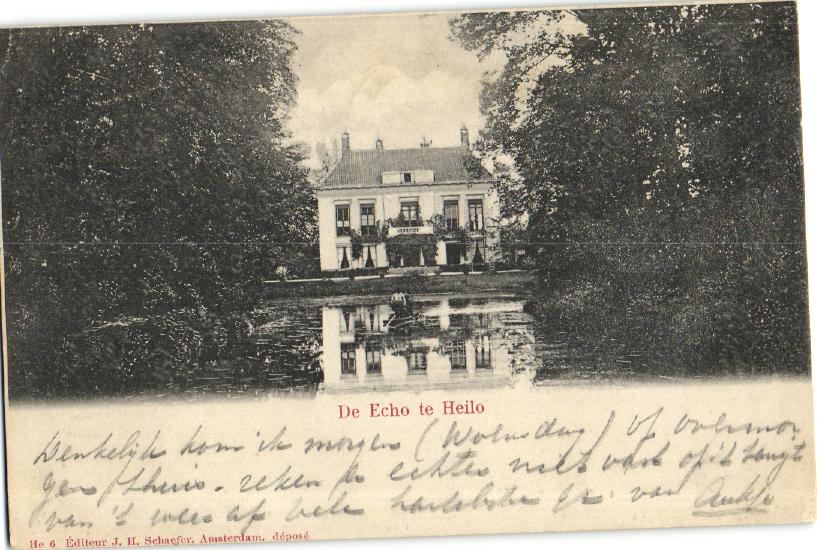 De Echo te Heilo
Denkelijk kom ik morgen (Woensdag) of overmor
gen thuis. reken er echter niet vast op 't hangt
van 't weer af vele hartelijke gr. van Aukje
He 6 Éditeur J. H. Schaefer. Amsterdam. déposé